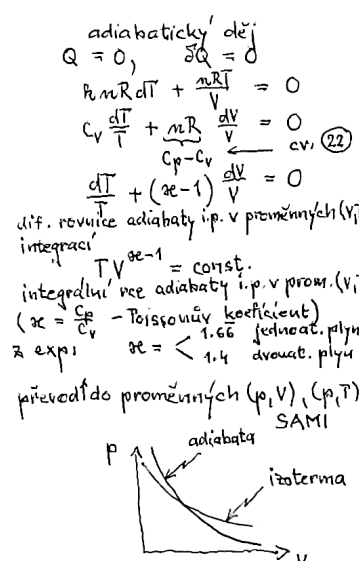 adiabatický děj
Q = 0, δQ = 0
k n R dT + nRT/V = 0
C_V dT/T + nR dV/V = 0
C_p - C_V ← cv. (22)
dT/T + (ϰ-1) dV/V = 0
dif. rovnice adiabaty i.p. v proměnných (V,T
integrací
TV^(ϰ-1) = const.
integrální rce adiabaty i.p. v prom. (V,
(ϰ = C_p/C_V - Poissonův koeficient)
z exp: ϰ = < 1.66 jednoat. plyn
1.4 dvouat. plyn
převodí do proměnných (p,V), (p,T)
SAMI
p
adiabata
izoterma
V